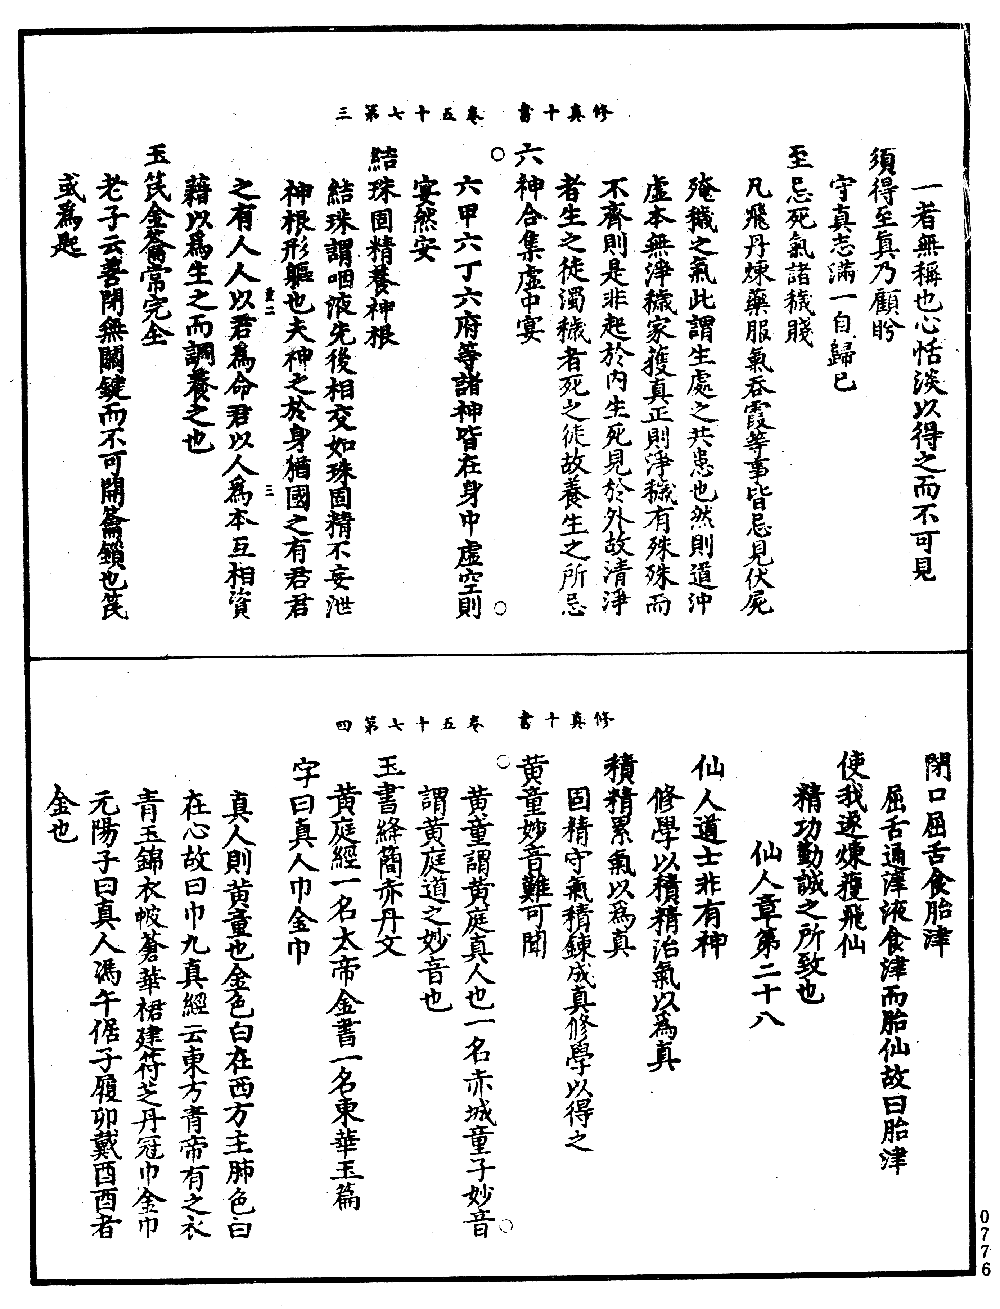 修真十書　卷五十七第三
一者無稱也心恬淡以得之而不可見
須得至真乃顧盻
守真志滿一自歸已
至忌死氣諸穢賤
凡飛丹煉藥服氣吞霞等事皆忌見伏屍
殗穢之氣此謂生處之共患也然則道沖
虛本無淨穢家獲真正則淨穢有殊殊而
不齊則是非起於內生死見於外故清淨
者生之徒濁穢者死之徒故養生之所忌
六神合集虛中宴
六甲六丁六府等諸神皆在身中虛空則
宴然安
結珠固精養神根
結珠謂咽液先後相交如珠固精不妄泄
神根形軀也夫神之於身猶國之有君君
之有人人以君為命君以人為本互相資
藉以為生之而調養之也
玉笢金籥常完全
老子云善閉無關鍵而不可開籥鎖也笢
或為匙
修真十書　卷五十七第四
閉口屈舌食胎津
屈舌通津液食津而胎仙故曰胎津
使我遂煉獲飛仙
精功勤誠之所致也
仙人章第二十八
仙人道士非有神
修學以積精治氣以為真
積精累氣以為真
固精守氣精鍊成真修學以得之
黃童妙音難可聞
黃童謂黃庭真人也一名赤城童子妙音
謂黃庭道之妙音也
玉書絳簡赤丹文
黃庭經一名太帝金書一名東華玉篇
字曰真人巾金巾
真人則黃童也金色白在西方主肺色白
在心故曰巾九真經云東方青帝有之衣
青玉錦衣帔蒼華裙建符芝丹冠巾金巾
元陽子曰真人馮午倨子履卯戴酉酉者
金也
0776